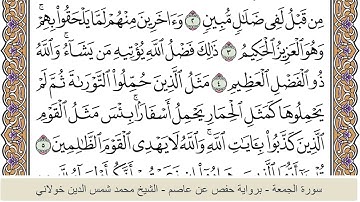 مِن قَبْلُ لَفِى ضَلَٰلٍ مُّبِينٍ ٢ وَءَاخَرِينَ مِنْهُمْ لَمَّا يَلْحَقُوا۟ بِهِمْ
وَهُوَ ٱلْعَزِيزُ ٱلْحَكِيمُ ٣ ذَٰلِكَ فَضْلُ ٱللَّهِ يُؤْتِيهِ مَن يَشَآءُ وَٱللَّهُ
ذُو ٱلْفَضْلِ ٱلْعَظِيمِ ٤ مَثَلُ ٱلَّذِينَ حُمِّلُوا۟ ٱلتَّوْرَىٰةَ ثُمَّ لَمْ
يَحْمِلُوهَا كَمَثَلِ ٱلْحِمَارِ يَحْمِلُ أَسْفَارًۢا بِئْسَ مَثَلُ ٱلْقَوْمِ
ٱلَّذِينَ كَذَّبُوا۟ بِـَٔايَٰتِ ٱللَّهِ وَٱللَّهُ لَا يَهْدِى ٱلْقَوْمَ ٱلظَّٰلِمِينَ ٥
سورة الجمعة - برواية حفص عن عاصم - الشيخ محمد شمس الدين خولاني